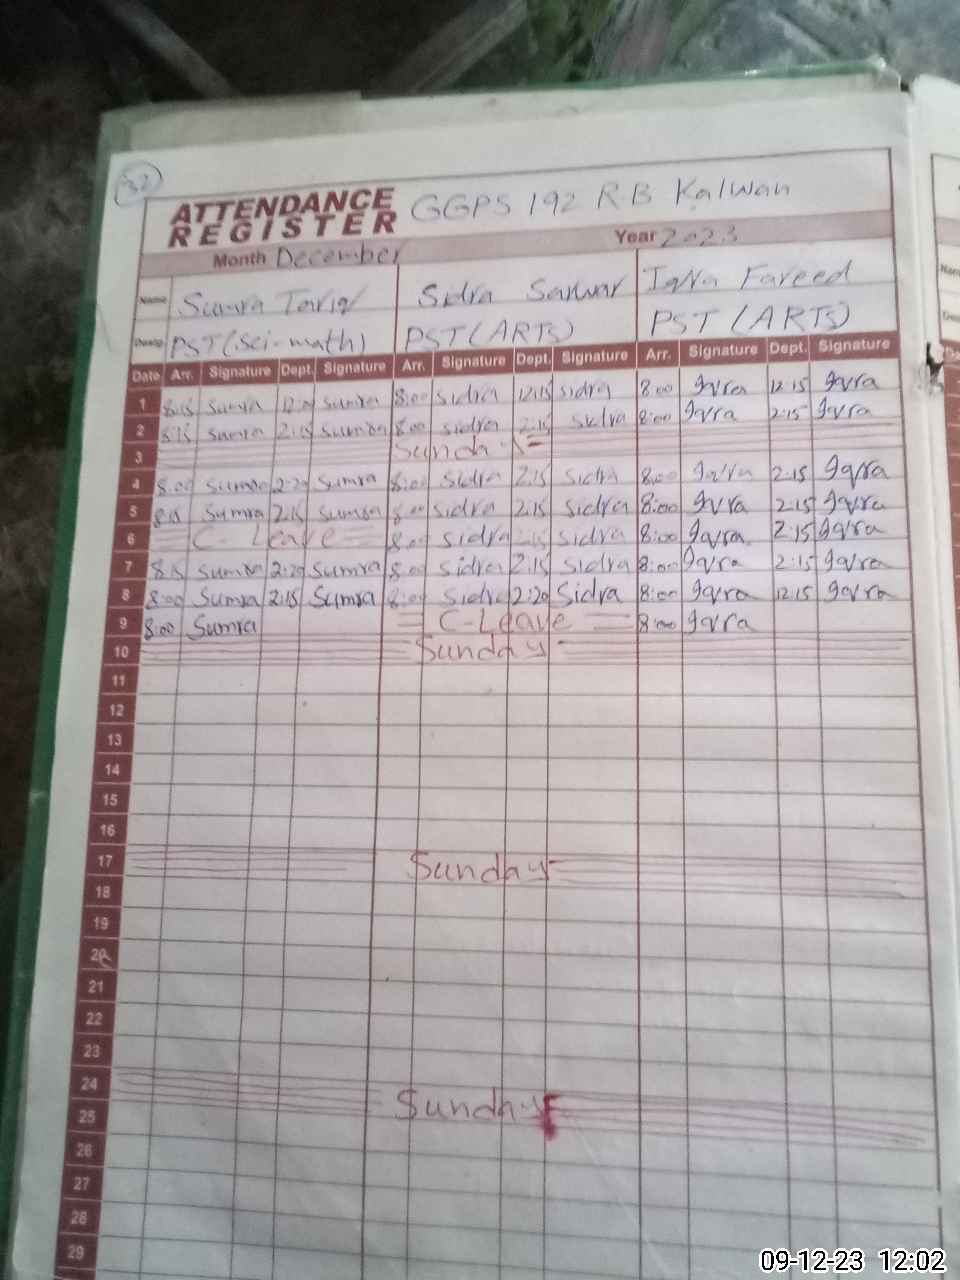 32
ATTENDANCE REGISTER GGPS 192 R.B Kalwan
Month December Year 2023
Name Sumra Tariq Sidra Sarwar Iqra Fareed
Desig. PST (Sci-math) PST (ARTS) PST (ARTS)
Date Arr. Signature Dept. Signature Arr. Signature Dept. Signature Arr. Signature Dept. Signature
1 8:15 Sumra Sumra 8:00 Sidra 12:15 Sidra 8:00 Iqra 12:15 Iqra
2 8:15 Sumra 2:15 Sumra 8:00 Sidra 2:15 Sidra 8:00 Iqra 2:15 Iqra
3 Sunday
4 8:00 Sumra 2:20 Sumra 8:00 Sidra 2:15 Sidra 8:00 Iqra 2:15 Iqra
5 8:15 Sumra 2:15 Sumra 8:00 Sidra 2:15 Sidra 8:00 Iqra 2:15 Iqra
6 C-Leave 8:00 Sidra 2:15 Sidra 8:00 Iqra 2:15 Iqra
7 8:15 Sumra 2:20 Sumra 8:00 Sidra 2:15 Sidra 8:00 Iqra 2:15 Iqra
8 8:00 Sumra 2:15 Sumra 8:00 Sidra 2:20 Sidra 8:00 Iqra 12:15 Iqra
9 8:00 Sumra C-Leave 8:00 Iqra
10 Sunday
11
12
13
14
15
16
17 Sunday
18
19
20
21
22
23
24 Sunday
25
26
27
28
29
09-12-23 12:02